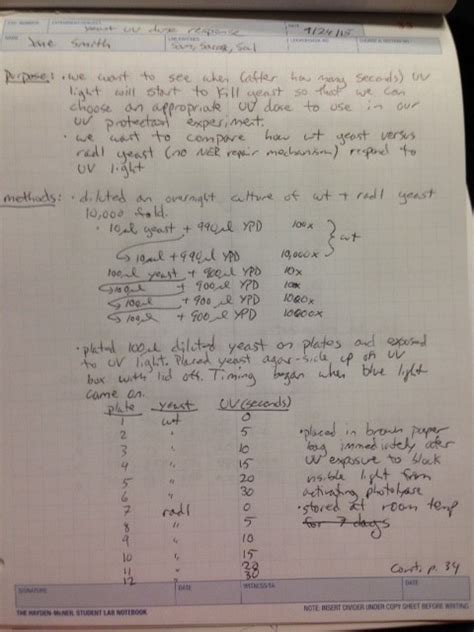 EXP. NUMBER EXPERIMENT/SUBJECT DATE 33
yeast UV dose response 9/24/15
NAME LAB PARTNER LOCKER/DESK NO. COURSE & SECTION NO.
Jane Smith Sam, Sarag, Sal
Purpose: • we want to see when (after how many seconds) UV
light will start to kill yeast so that we can
choose an appropriate UV dose to use in our
UV protection experiment.
• we want to compare how wt yeast versus
rad1 yeast (no NER repair mechanism) respond to
UV light
methods: • diluted an overnight culture of wt + rad1 yeast
10,000 fold.
• 10µl yeast + 990µl YPD 100x
10µl + 990µl YPD 10,000x } wt
100µl yeast + 900µl YPD 10x
100µl + 900µl YPD 100x
100µl + 900µl YPD 1000x
100µl + 900µl YPD 10000x
• plated 100µl diluted yeast on plates and exposed
to UV light. Placed yeast agar-side up on UV
box with lid off. Timing began when blue light
came on.
plate yeast UV (seconds)
1 wt 0
2 " 5
3 " 10
4 " 15
5 " 20
6 " 30
7 rad1 0
8 " 5
9 " 10
10 " 15
11 " 20
12 " 30
• placed in brown paper
bag immediately after
UV exposure to block
visible light from
activating photolyase
• stored at room temp
for 7 days
Cont. p. 34
SIGNATURE DATE WITNESS/TA DATE
THE HAYDEN-McNEIL STUDENT LAB NOTEBOOK NOTE: INSERT DIVIDER UNDER COPY SHEET BEFORE WRITING